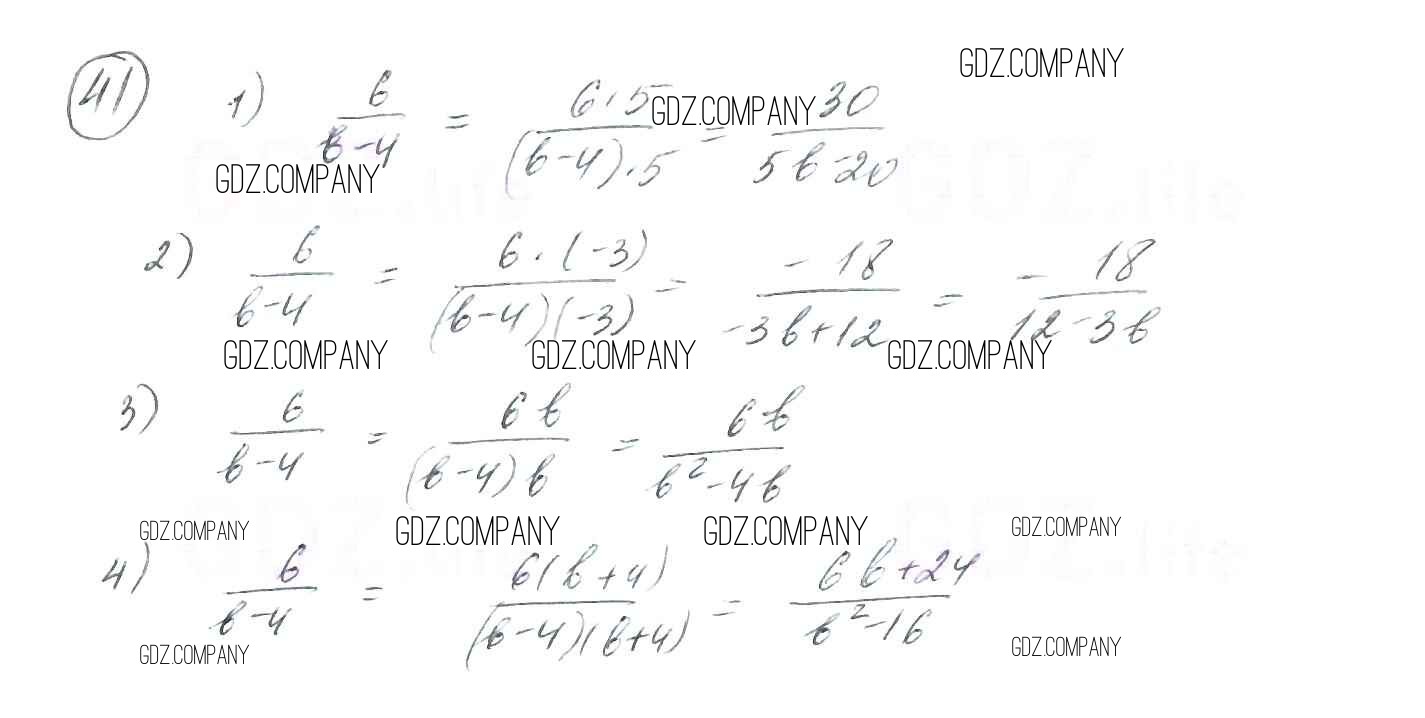 GDZ.COMPANY
41 1) 6/(в-4) = (6·5)/((в-4)·5) = 30/(5в-20)
GDZ.COMPANY
GDZ.COMPANY
2) 6/(в-4) = (6·(-3))/((в-4)(-3)) = (-18)/(-3в+12) = -18/(12-3в)
GDZ.COMPANY GDZ.COMPANY GDZ.COMPANY
3) 6/(в-4) = 6в/((в-4)в) = 6в/(в²-4в)
GDZ.COMPANY GDZ.COMPANY GDZ.COMPANY GDZ.COMPANY
4) 6/(в-4) = 6(в+4)/((в-4)(в+4)) = (6в+24)/(в²-16)
GDZ.COMPANY GDZ.COMPANY